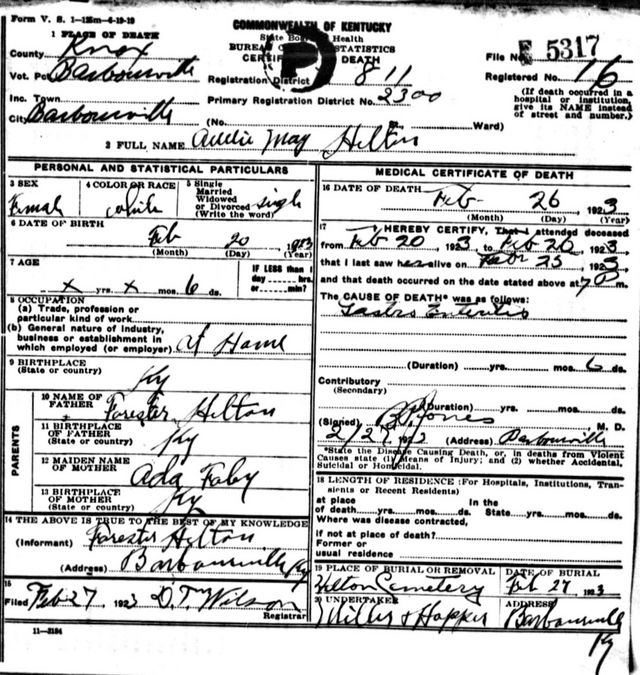 Form V. S. 1-125m-6-19-19
COMMONWEALTH OF KENTUCKY
State Board of Health
BUREAU OF VITAL STATISTICS
CERTIFICATE OF DEATH
1 PLACE OF DEATH
County Knox
Vot. Pct. Barbourville
Inc. Town
City Barbourville
Registration District 811
Primary Registration District No. 2300
(No. St. Ward)
File No. 5317
Registered No. 16
(If death occurred in a
hospital or institution,
give its NAME instead
of street and number.)
2 FULL NAME May Hilton
PERSONAL AND STATISTICAL PARTICULARS
3 SEX
Female
4 COLOR OR RACE
white
5 Single
Married
Widowed
or Divorced
(Write the word)
single
6 DATE OF BIRTH
Feb 20 1923
(Month) (Day) (Year)
7 AGE
x yrs. x mos. 6 ds.
IF LESS than 1
day hrs.
or min?
8 OCCUPATION
(a) Trade, profession or
particular kind of work
(b) General nature of industry,
business or establishment in
which employed (or employer) at Home
9 BIRTHPLACE
(State or country)
Ky
PARENTS
10 NAME OF
FATHER
Forester Hilton
11 BIRTHPLACE
OF FATHER
(State or country)
Ky
12 MAIDEN NAME
OF MOTHER
Ada Faby
13 BIRTHPLACE
OF MOTHER
(State or country)
Ky
14 THE ABOVE IS TRUE TO THE BEST OF MY KNOWLEDGE
(Informant) Forester Hilton
(Address) Barbourville Ky
15
Filed Feb 27 1923 D. T. Wilson
Registrar
11-3184
MEDICAL CERTIFICATE OF DEATH
16 DATE OF DEATH
Feb 26 1923
(Month) (Day) (Year)
17 I HEREBY CERTIFY, That I attended deceased
from Feb 20 1923, to Feb 26 1923,
that I last saw her alive on Feb 25 1923,
and that death occurred on the date stated above at 7 m.
The CAUSE OF DEATH* was as follows:
Gastro Enteritis
(Duration) yrs. mos. 6 ds.
Contributory
(Secondary)
(Duration) yrs. mos. ds.
(Signed) Jones M. D.
2/27 1923 (Address) Barbourville
*State the Disease Causing Death, or, in deaths from Violent
Causes state (1) Means of Injury; and (2) whether Accidental,
Suicidal or Homicidal.
18 LENGTH OF RESIDENCE (For Hospitals, Institutions, Tran-
sients or Recent Residents)
at place In the
of death yrs. mos. ds. State yrs. mos. ds.
Where was disease contracted,
if not at place of death?
Former or
usual residence
19 PLACE OF BURIAL OR REMOVAL
Hilton Cemetery
DATE OF BURIAL
Feb 27 1923
20 UNDERTAKER
Miller & Hopper
ADDRESS
Barbourville
Ky